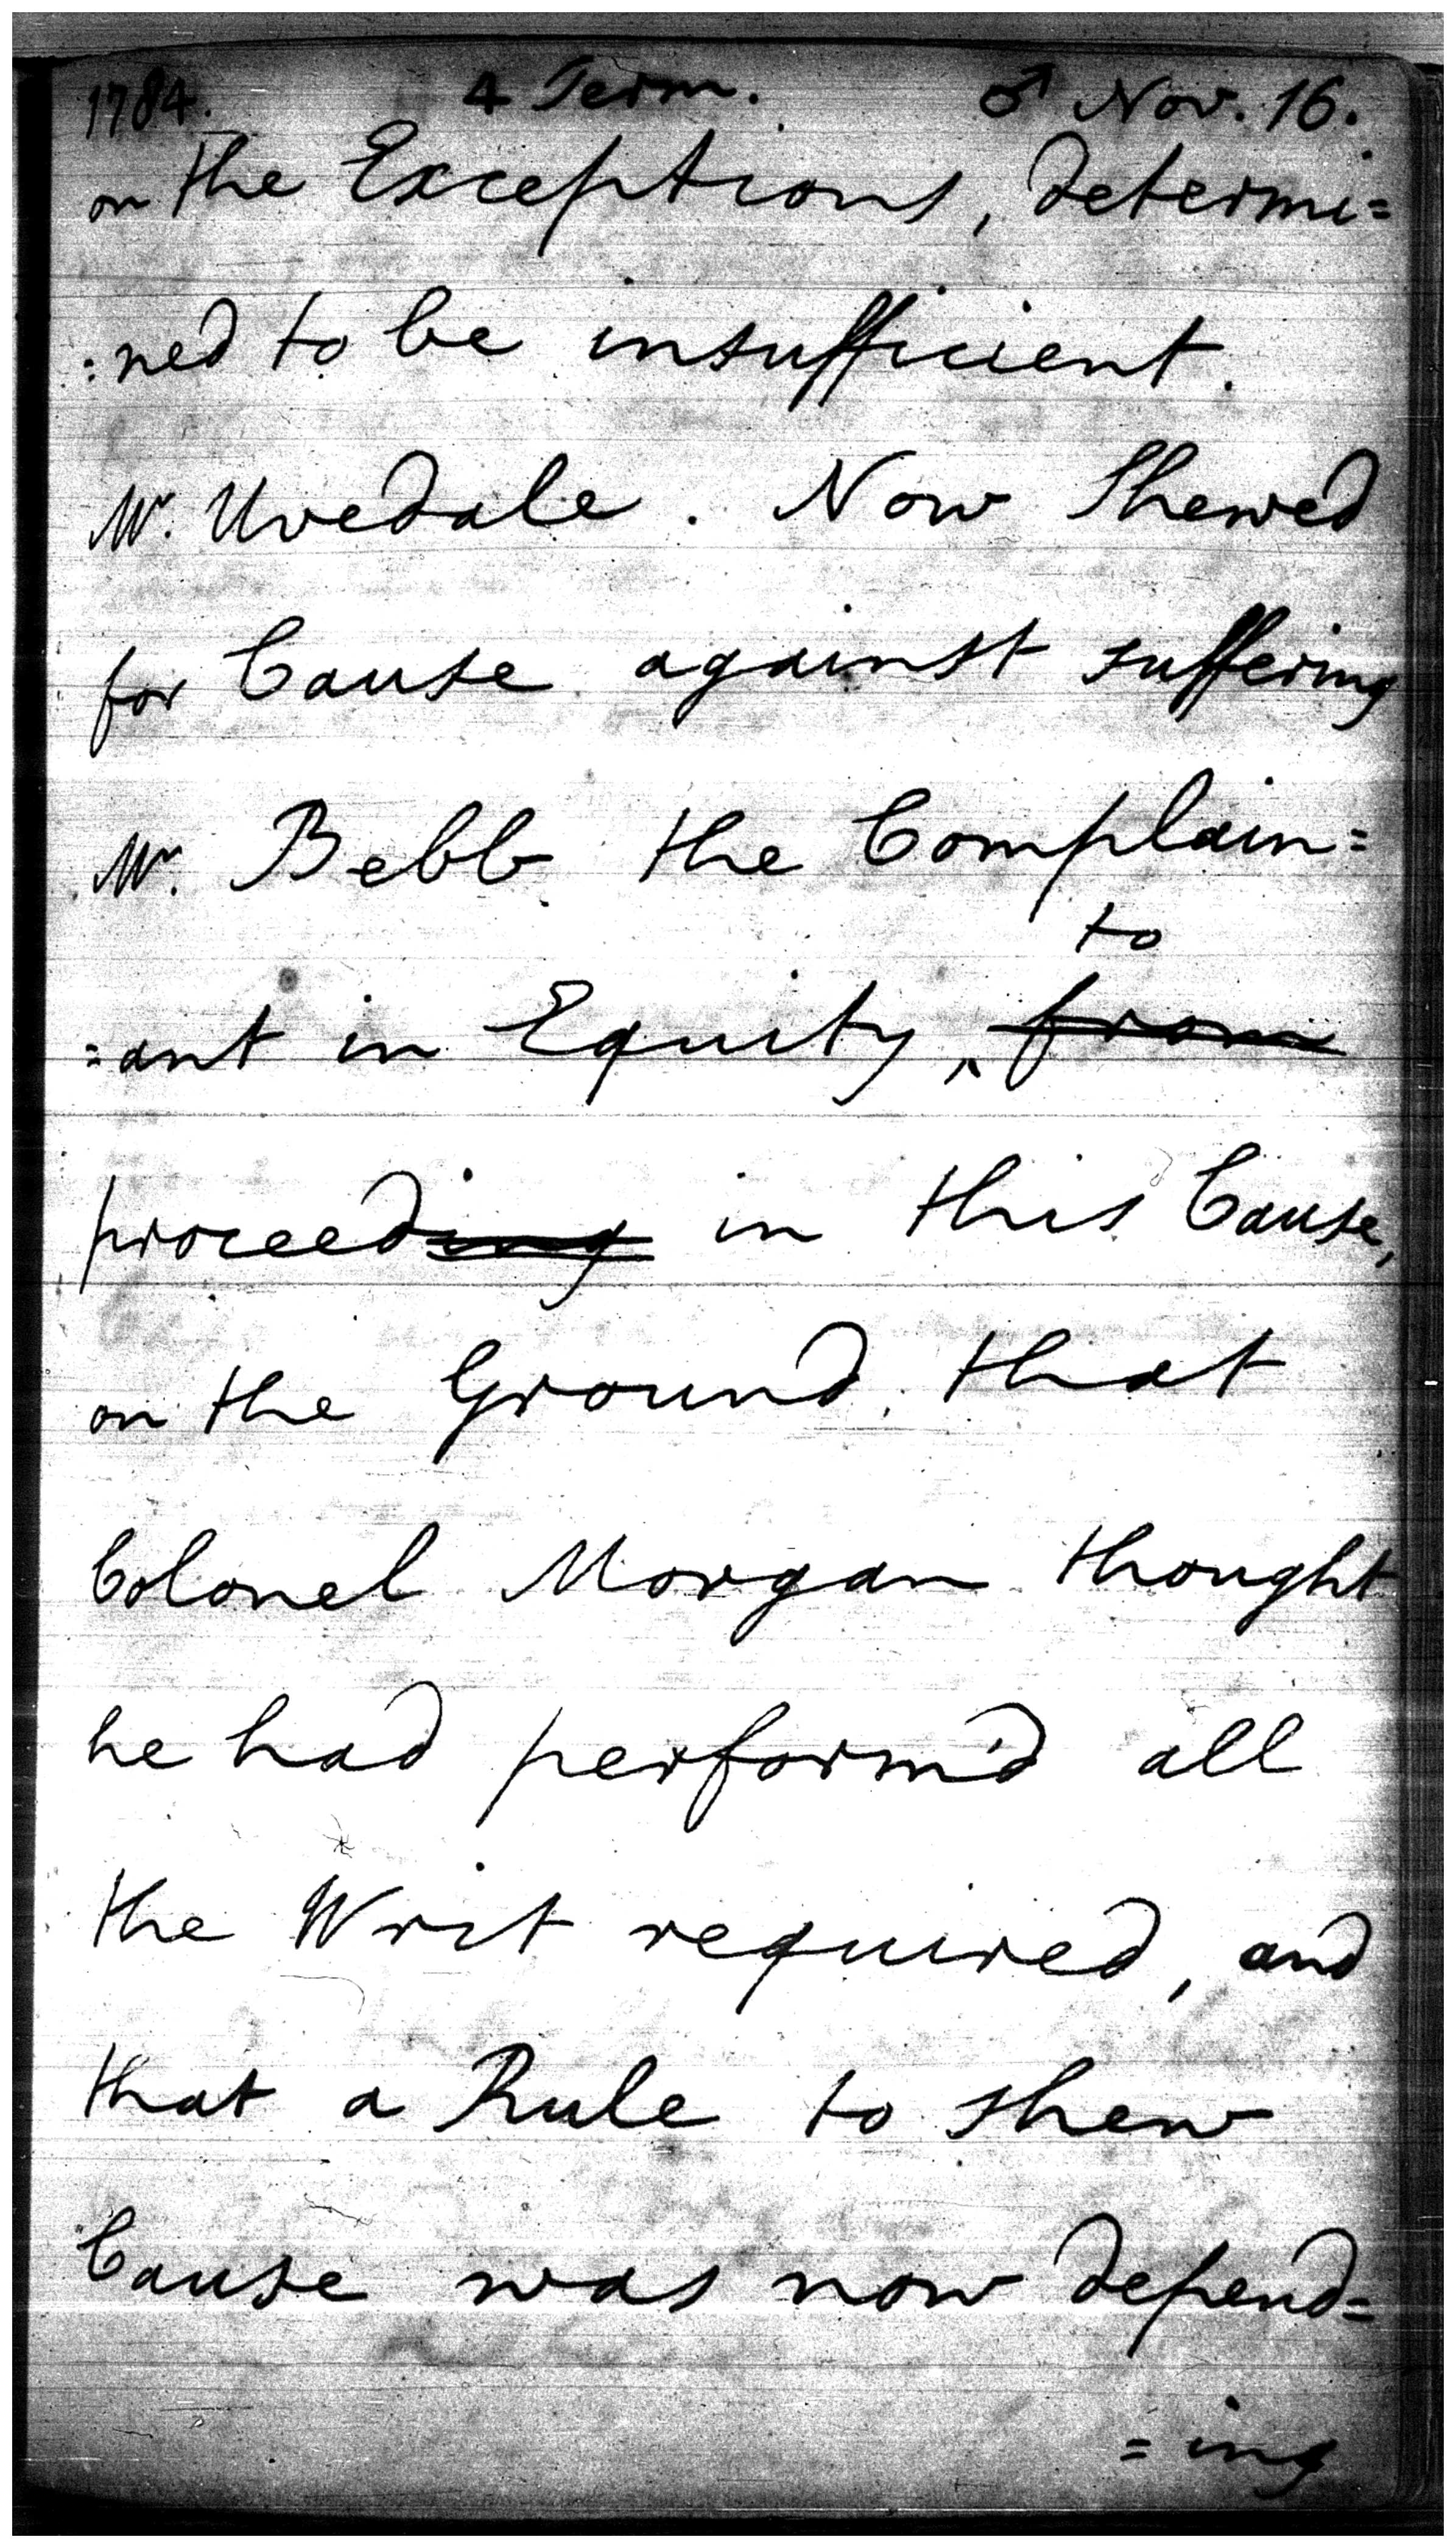 1784. 4 Term. ♂ Nov. 16.
on the Exceptions, determi=
:ned to be insufficient.
Mr. Uvedale. Now Shewed
for Cause against suffering
Mr. Bebb the Complain=
to
=ant in Equity, ‸ from
proceeding in this Cause,
on the Ground, that
Colonel Morgan thought
he had perform'd all
the Writ required, and
that a Rule to shew
Cause was now depend=
=ing